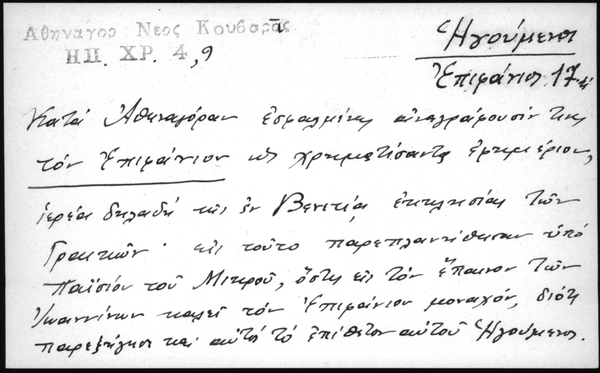 Αθηναγορ Νεος Κουβαρᾶς
ΗΠ. ΧΡ. 4,9
Ἡγούμενος
Ἐπιφάνιος 17
Κατά Ἀθηναγόραν ἐσφαλμένως ἀναγράφουσίν τινες
τόν Ἐπιφάνιον ὡς χρηματίσαντα ἐφημέριον,
ἱερέα δηλαδή τῆς ἐν Βενετίᾳ ἐκκλησίας τῶν
Γραικῶν· εἰς τοῦτο παρεπλανήθησαν ὑπό
Παϊσίου τοῦ Μικροῦ, ὅστις εἰς τόν ἔπαινον τῶν
Ἰωαννίνων καλεῖ τόν Ἐπιφάνιον μοναχόν, διότι
παρεξήγησε καί αὐτός τό ἐπίθετον αὐτοῦ Ἡγούμενος.